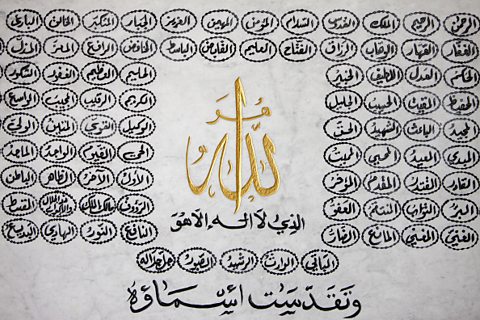 الرحمن الرحيم الملك القدوس السلام المؤمن المهيمن العزيز الجبار المتكبر الخالق البارئ
الغفار القهار الوهاب الرزاق الفتاح العليم القابض الباسط الخافض الرافع المعز المذل
الحكم العدل اللطيف الخبير الحليم العظيم الغفور الشكور
الحفيظ المقيت الحسيب الجليل الكريم الرقيب المجيب الواسع
المجيد الباعث الشهيد الحق الوكيل القوي المتين الولي
المبدئ المعيد المحيي المميت الحي القيوم الواجد الماجد
القادر المقتدر المقدم المؤخر الأول الآخر الظاهر الباطن
البر التواب المنتقم العفو الرؤوف مالك الملك ذو الجلال والإكرام المقسط
الغني المغني المانع الضار النافع النور الهادي البديع
هو الله
الذي لا اله الا هو
الباقي الوارث الرشيد الصبور جل جلاله
وتقدست أسماؤه